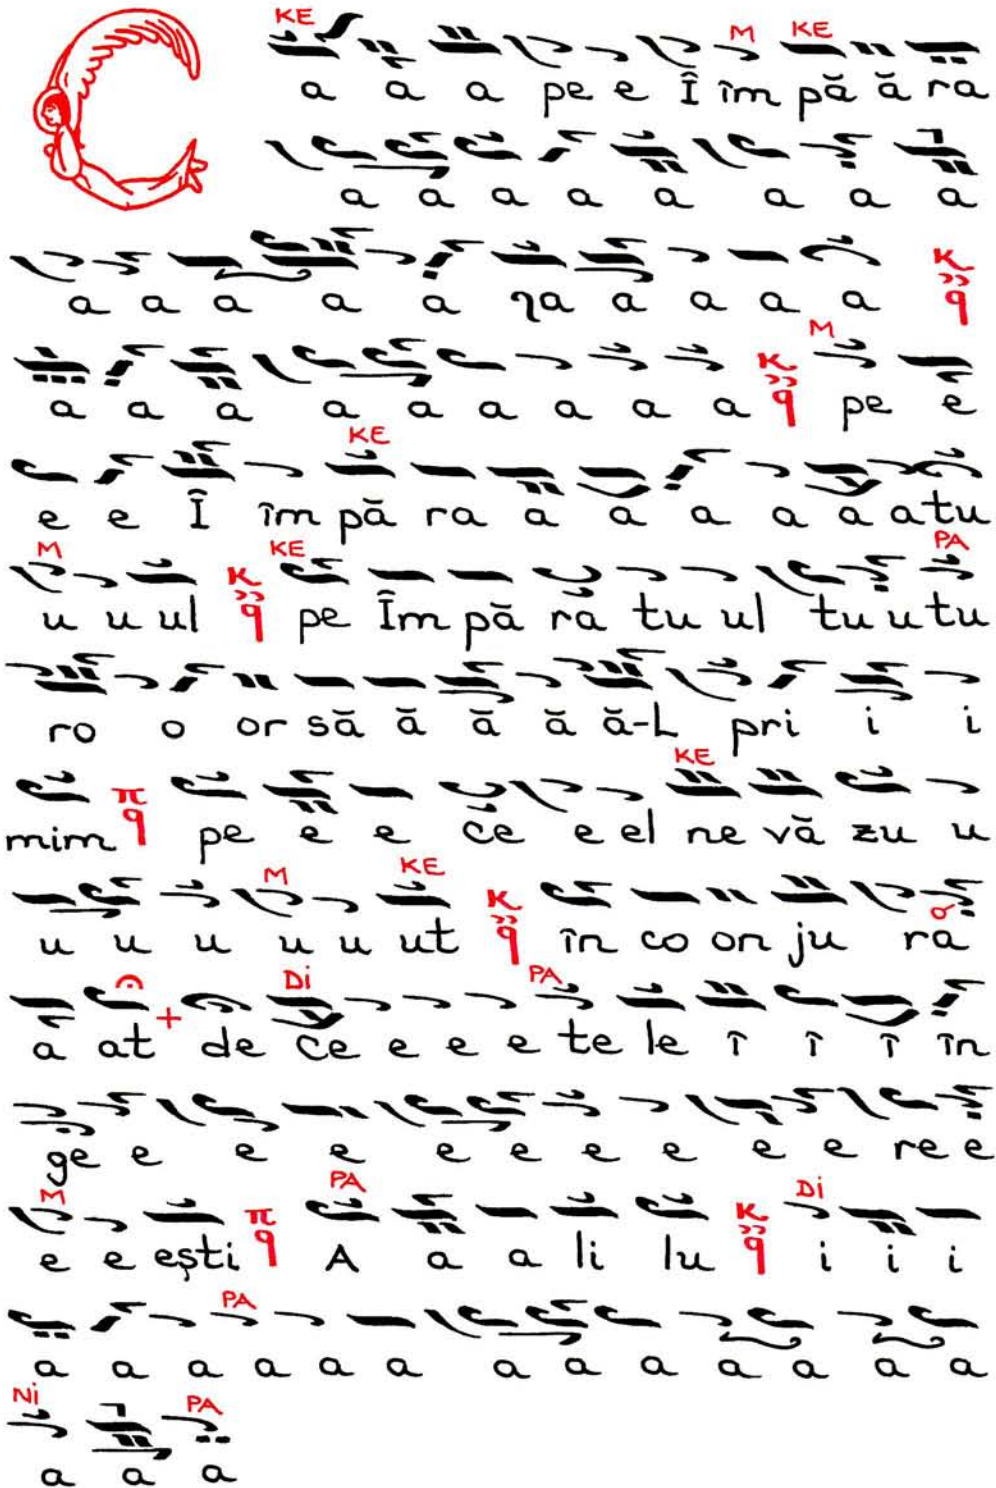 KE M KE
C a a a pe e Î îm pă ă ra
a a a a a a a a
a a a a a ɳa a a a a K ɋ
M
a a a a a a a a a K ɋ pe e
KE
e e Î îm pă ra a a a a a a tu
M KE PA
u u ul K ɋ pe Îm pă ra tu ul tu u tu
ro o or să ă ă ă ă-L pri i i
KE
mim π ɋ pe e e ce e el ne vă zu u
M KE
u u u u u ut K ɋ în co on ju ra
Di PA
a at + de ce e e e te le î î î în
ge e e e e e e e e e re e
M PA Di
e e ești π ɋ A a a li lu K ɋ i i i
PA
a a a a a a a a a a a a a
Ni PA
a a a